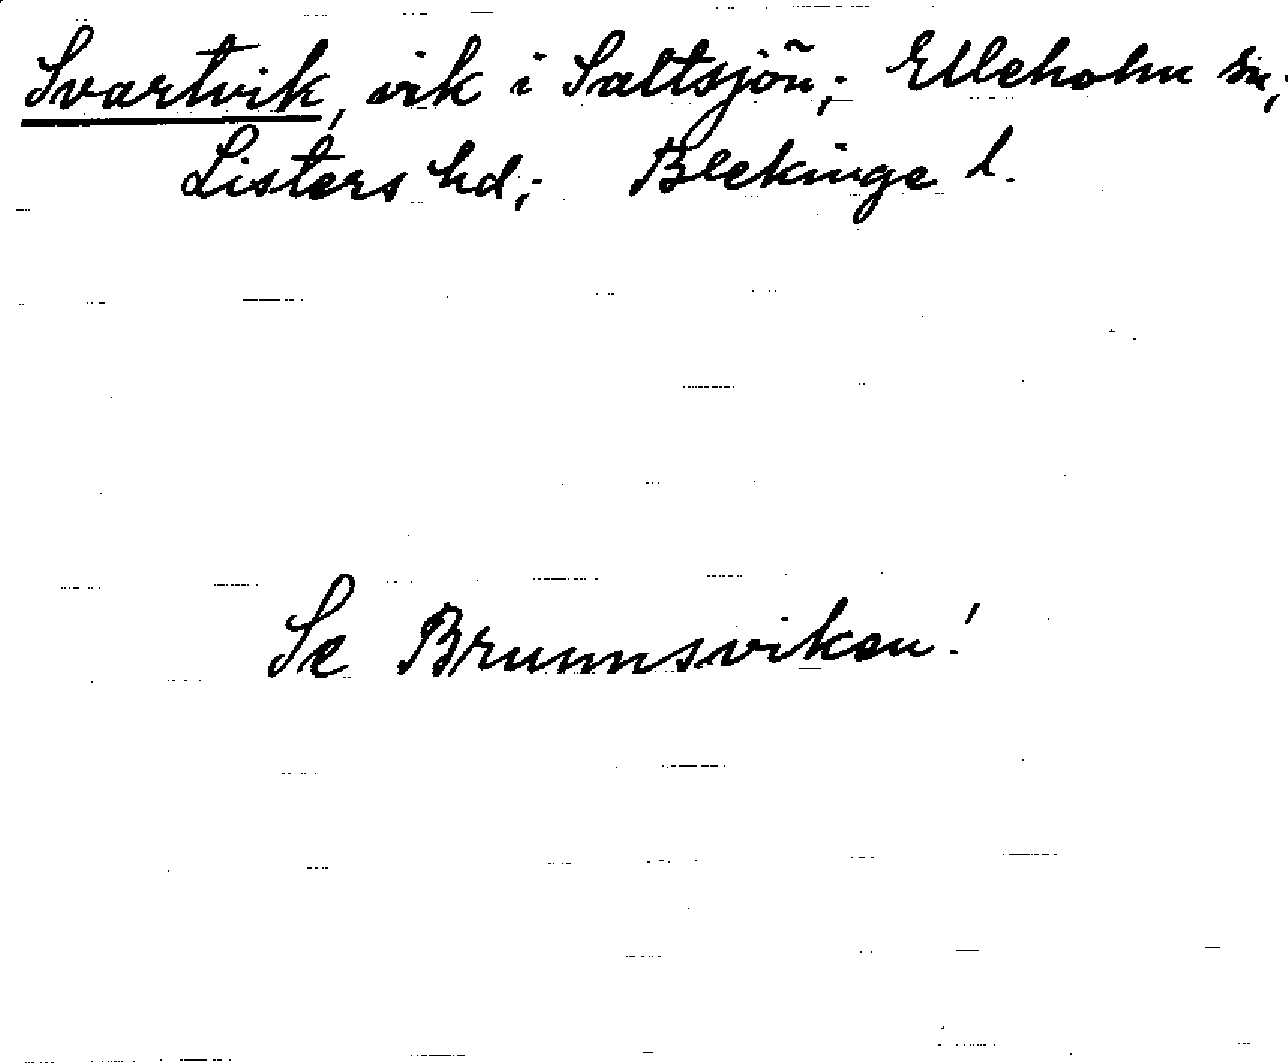 Svartvik, vik i Saltsjön; Elleholm sn;
Listers hd; Blekinge l.
Se Brunnsviken!